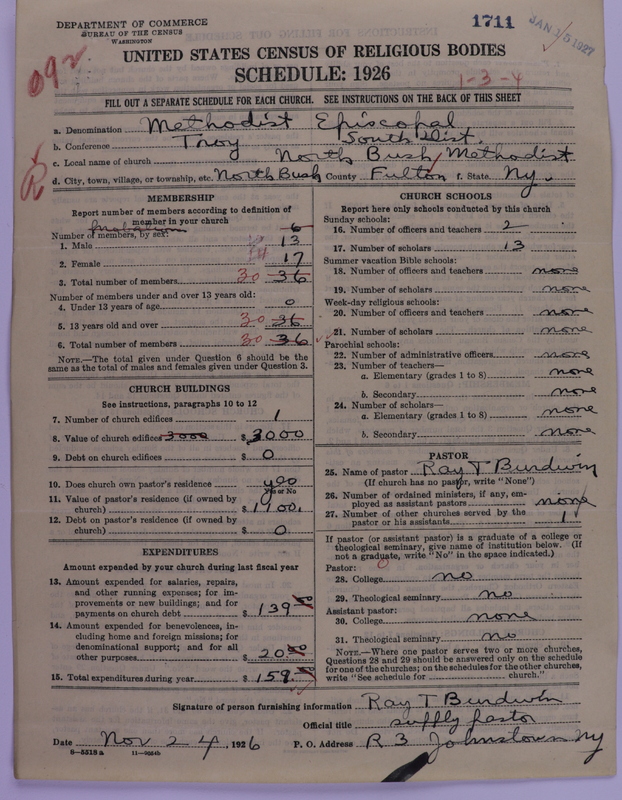 DEPARTMENT OF COMMERCE
BUREAU OF THE CENSUS
WASHINGTON
1711
JAN 15 1927
UNITED STATES CENSUS OF RELIGIOUS BODIES
SCHEDULE: 1926
092
1-3-4
FILL OUT A SEPARATE SCHEDULE FOR EACH CHURCH. SEE INSTRUCTIONS ON THE BACK OF THIS SHEET
a. Denomination Methodist Episcopal
b. Conference Troy South Dist.
c. Local name of church North Bush Methodist
d. City, town, village, or township, etc. North Bush County Fulton f. State Ny.
R
MEMBERSHIP
Report number of members according to definition of member in your church
Probation 6
Number of members, by sex:
1. Male 13
2. Female 17
3. Total number of members 30 36
Number of members under and over 13 years old:
4. Under 13 years of age 0
5. 13 years old and over 30 36
6. Total number of members 30 36
NOTE.—The total given under Question 6 should be the
same as the total of males and females given under Question 3.
CHURCH BUILDINGS
See instructions, paragraphs 10 to 12
7. Number of church edifices 1
8. Value of church edifices 3000 $3000
9. Debt on church edifices $0
10. Does church own pastor's residence yes
Yes or No
11. Value of pastor's residence (if owned by
church) $
12. Debt on pastor's residence (if owned by
church) $0
EXPENDITURES
Amount expended by your church during last fiscal year
13. Amount expended for salaries, repairs,
and other running expenses; for im-
provements or new buildings; and for
payments on church debt $139.00
14. Amount expended for benevolences, in-
cluding home and foreign missions; for
denominational support; and for all
other purposes $20.00
15. Total expenditures during year $159.00
CHURCH SCHOOLS
Report here only schools conducted by this church
Sunday schools:
16. Number of officers and teachers 2
17. Number of scholars 13
Summer vacation Bible schools:
18. Number of officers and teachers none
19. Number of scholars none
Week-day religious schools:
20. Number of officers and teachers none
21. Number of scholars none
Parochial schools:
22. Number of administrative officers none
23. Number of teachers—
a. Elementary (grades 1 to 8) none
b. Secondary none
24. Number of scholars—
a. Elementary (grades 1 to 8) none
b. Secondary none
PASTOR
25. Name of pastor Ray T Burdwin
(If church has no pastor, write "None")
26. Number of ordained ministers, if any, em-
ployed as assistant pastors none
27. Number of other churches served by the
pastor or his assistants 1
If pastor (or assistant pastor) is a graduate of a college or
theological seminary, give name of institution below. (If
not a graduate, write "No" in the space indicated.)
Pastor:
28. College no
29. Theological seminary no
Assistant pastor:
30. College none
31. Theological seminary no
NOTE.—Where one pastor serves two or more churches,
Questions 28 and 29 should be answered only on the schedule
for one of the churches; on the schedules for the other churches,
write "See schedule for church."
Signature of person furnishing information Ray T Burdwin
Official title supply pastor
Date Nov 24, 1926 P. O. Address R 3 Johnstown Ny
8—5518 a